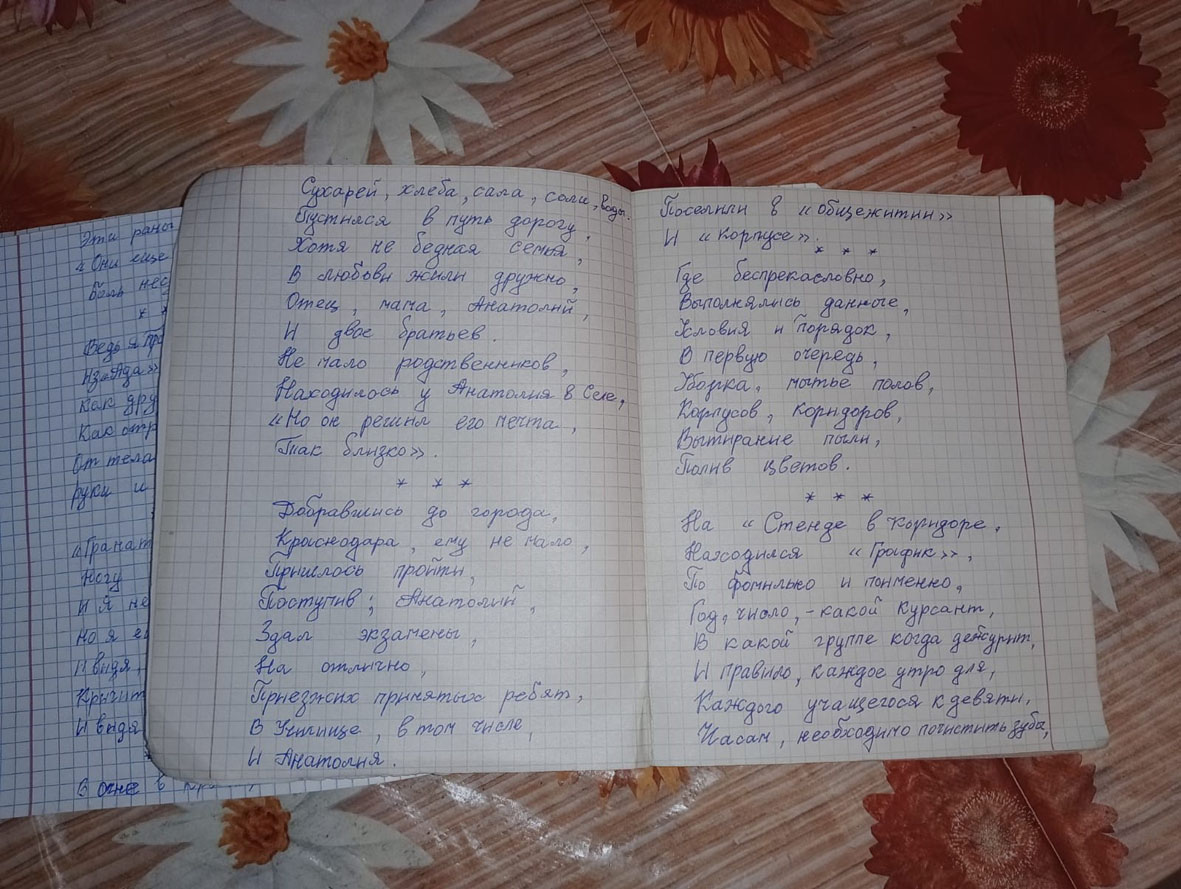 Эти раны
«Они еще
Боль нес
* *
Ведь я пр
Из «Ада»
Как дру
Как отр
От тела
руки и
«Гранат
Ногу
И Я не
Но я е
И видя,
Кричит
И видя
В огне в
Сухарей, хлеба, сала, соли, воды.
Пустился в путь дорогу,
Хотя не бедная семья,
В любови жили дружно,
Отец, мама, Анатолий,
И двое братьев.
Не мало родственников,
Находилось у Анатолия в Селе,
«Но он решил его мечта,
Так близко».
* * *
Добравшись до города,
Краснодара, ему не мало,
Пришлось пройти,
Поступив; Анатолий,
Здал экзамены,
На отлично,
Приезжих принятых ребят,
В Училище, в том числе,
И Анатолия.
Поселили в «Общежитии»
И «Корпусе».
* * *
Где беспрекасловно,
Выполнялись данные,
Условия и порядок,
В первую очередь,
Уборка, мытье полов,
Корпусов, коридоров,
Вытирание пыли,
Полив цветов.
* * *
На «Стенде в коридоре,
Находился «График»,
По фомильно и поименно,
Год, число, - какой Курсант,
В какой группе когда дежурит,
И правило, каждое утро для,
Каждого учащегося к девяти,
Часам, необходимо почистить зубы,